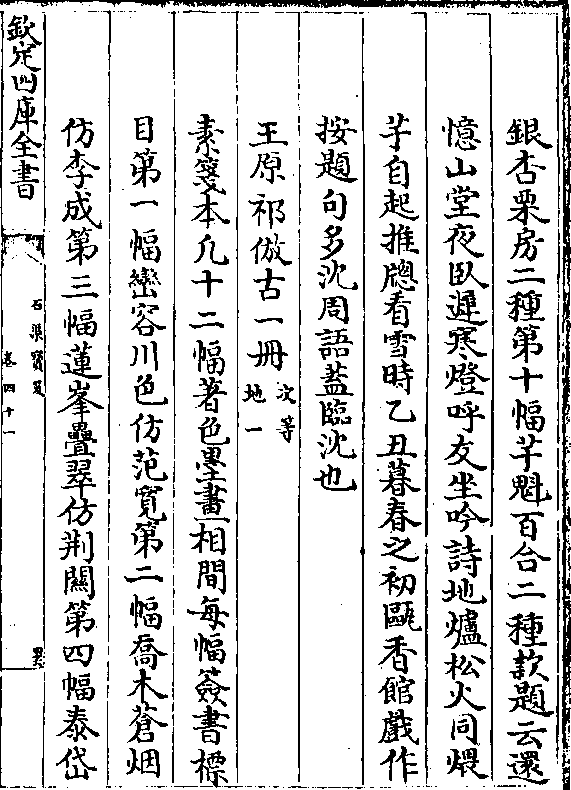 銀杏栗房二種第十幅芋魁百合二種款題云還
憶山堂夜臥遲寒燈呼友坐吟詩地爐松火同煨
芋自起推牕看雪時乙丑暮春之初甌香館戲作
按題句多沈周語葢臨沈也
王原祁倣古一冊次等地一
素箋本凡十二幅著色墨畫相間每幅簽書標
目第一幅巒容川色仿范寛第二幅喬木蒼烟
仿李成第三幅蓮峯疊翠仿荆關第四幅泰岱
欽定四庫全書
石渠寶笈
卷四十一